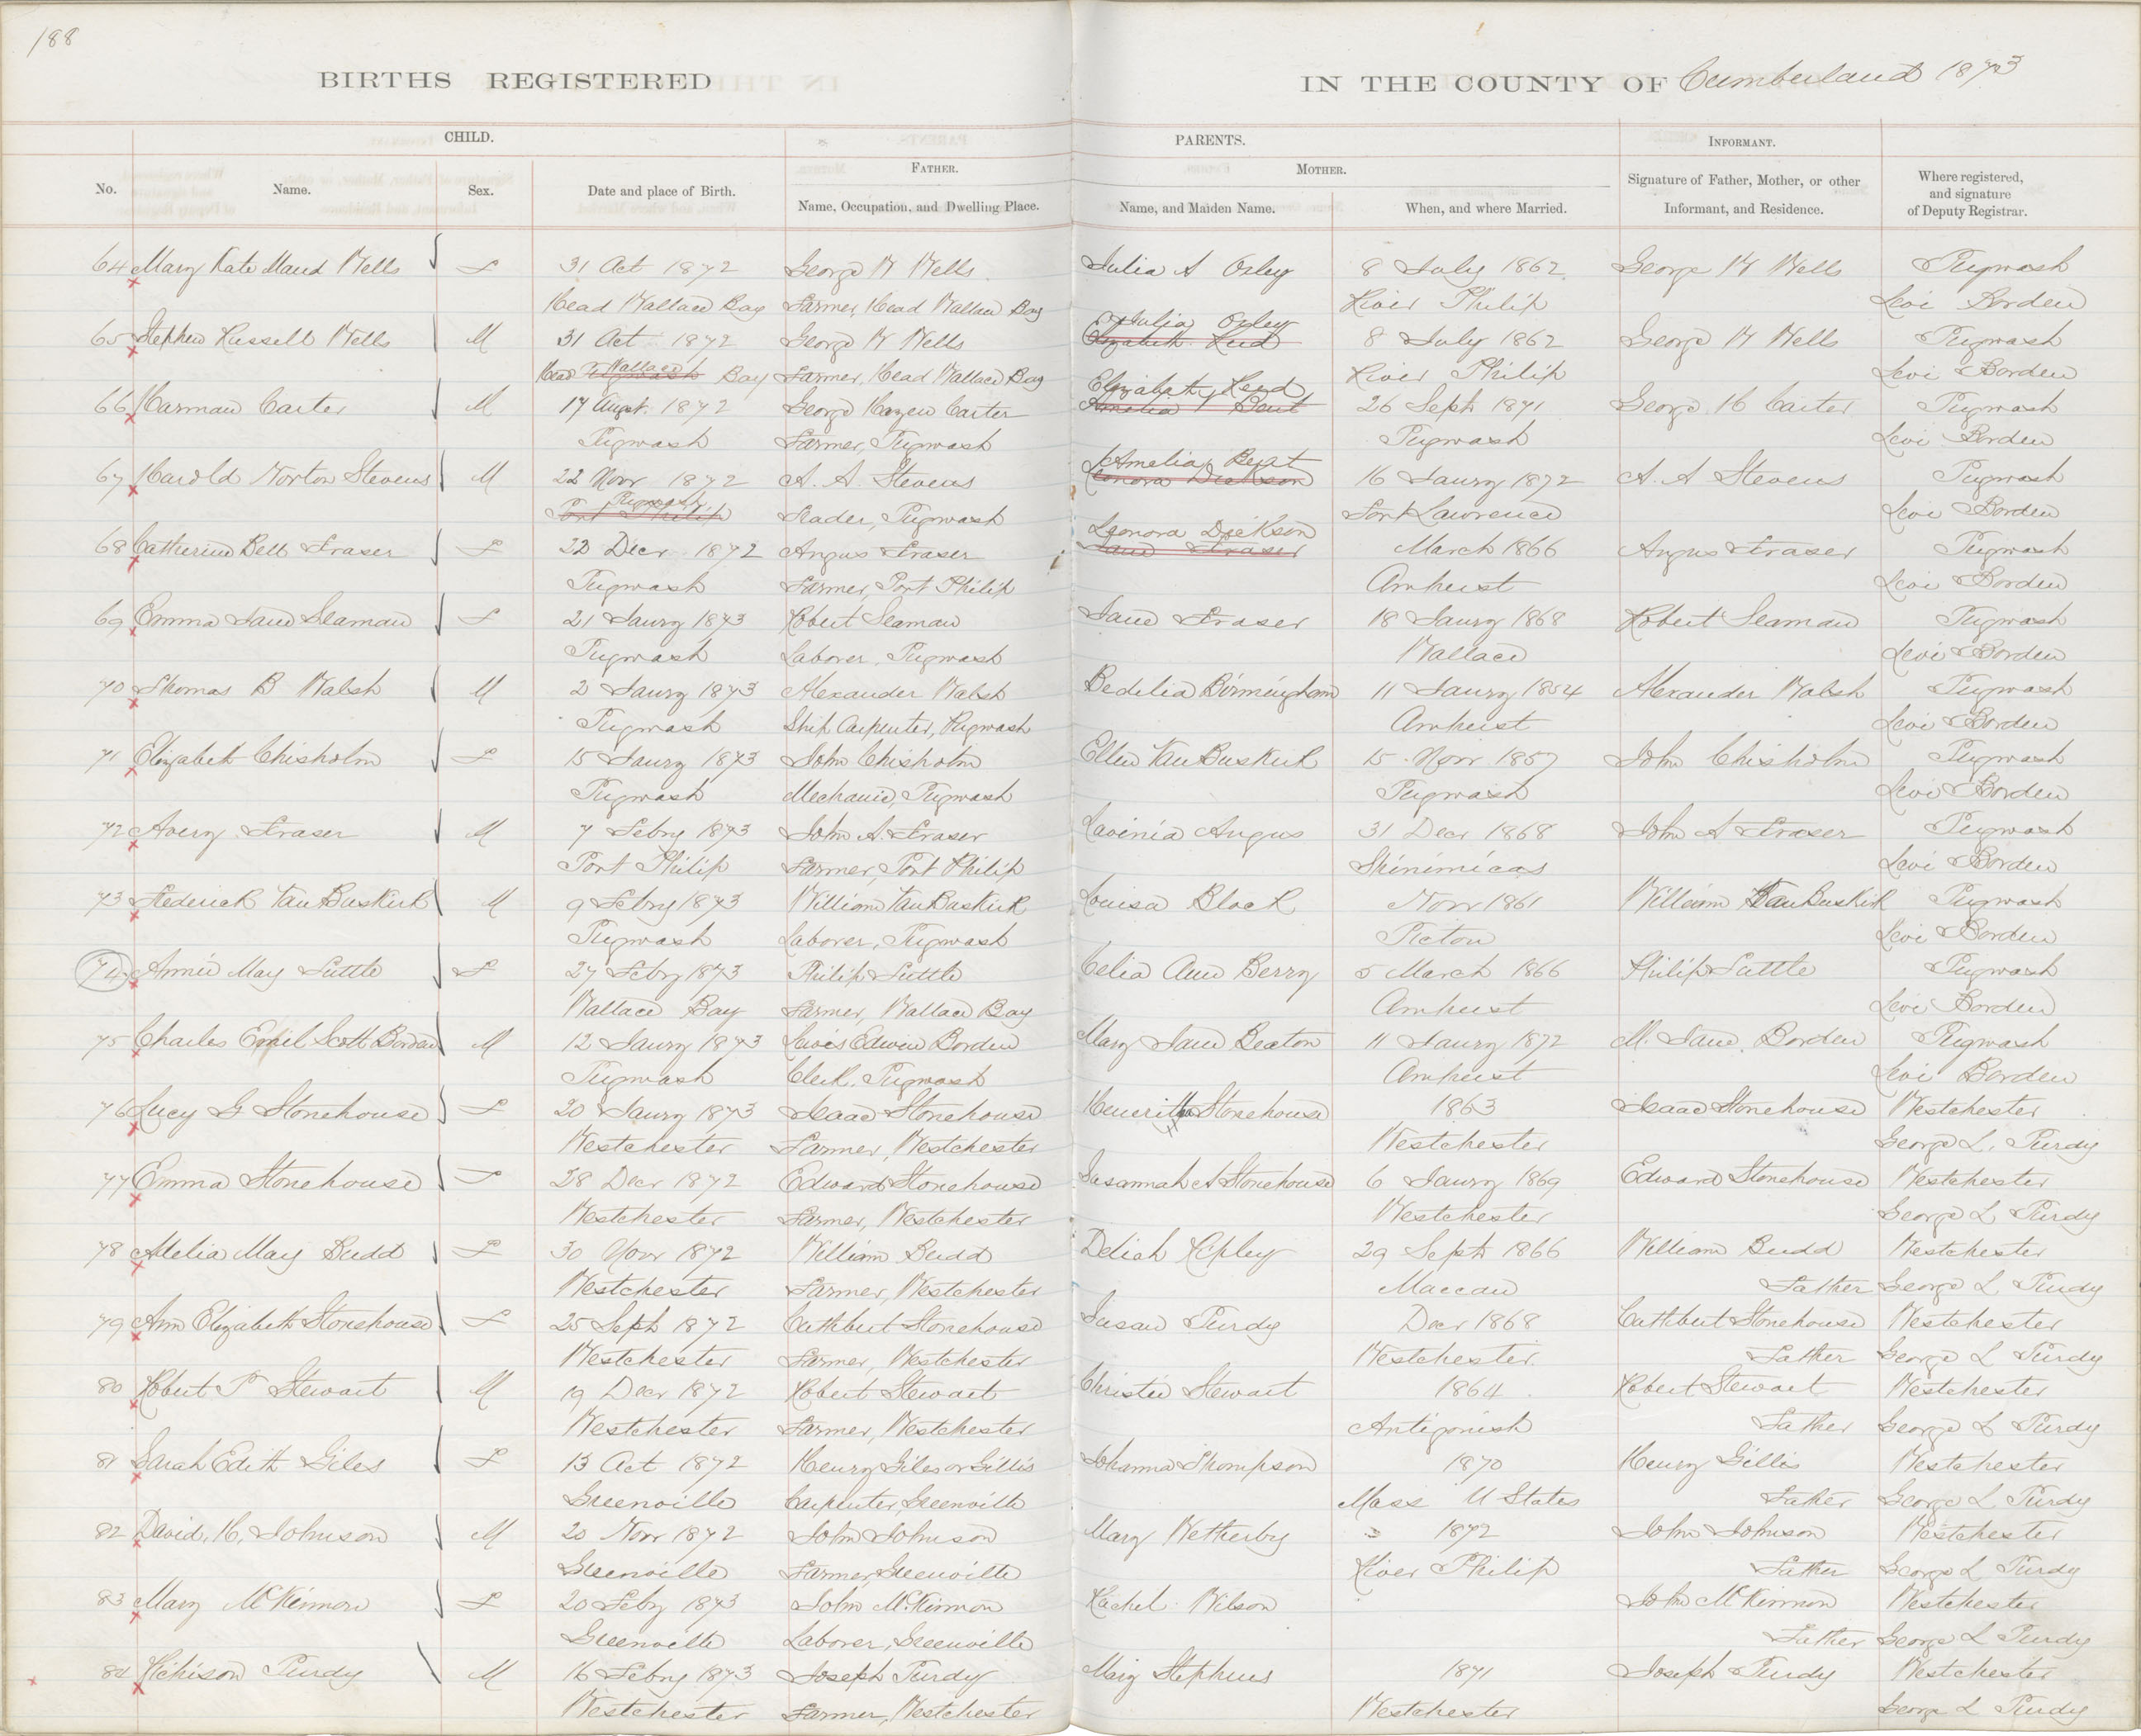 188
BIRTHS REGISTERED IN THE COUNTY OF Cumberland 1873
CHILD. PARENTS. INFORMANT.
FATHER. MOTHER.
No. Name. Sex. Date and place of Birth. Name, Occupation, and Dwelling Place. Name, and Maiden Name. When, and where Married. Signature of Father, Mother, or other Informant, and Residence. Where registered, and signature of Deputy Registrar.
64 Mary Kate Maud Wells F 31 Oct 1872 George W Wells Julia A Oxley 8 July 1862 George W Wells Pugwash
Head Wallace Bay Farmer, Head Wallace Bay River Philip Levi Borden
Julia Oxley
65 Stephen Russell Wells M 31 Oct 1872 George W Wells Elizabeth Reid 8 July 1862 George W Wells Pugwash
Head Wallace Bay Farmer, Head Wallace Bay River Philip Levi Borden
Elizabeth Read
66 Harman Carter M 17 Augst 1872 George Hazen Carter Amelia Bent 26 Sept 1871 George H Carter Pugwash
Pugwash Farmer, Pugwash Pugwash Levi Borden
Amelia Bent
67 Harold Norton Stevens M 22 Novr 1872 A. A. Stevens Leonora Dickson 16 Janry 1872 A. A Stevens Pugwash
Pugwash
Port Philip Trader, Pugwash Fort Lawrence Levi Borden
Leonora Dickson
68 Catherine Bell Fraser F 22 Decr 1872 Angus Fraser Jane Fraser March 1866 Angus Fraser Pugwash
Pugwash Farmer, Port Philip Amherst Levi Borden
69 Emma Jane Seaman F 21 Janry 1873 Robert Seaman Jane Fraser 18 Janry 1868 Robert Seaman Pugwash
Pugwash Laborer, Pugwash Wallace Levi Borden
70 Thomas B Walsh M 2 Janry 1873 Alexander Walsh Bedelia Birmingham 11 Janry 1854 Alexander Walsh Pugwash
Pugwash Ship Carpenter, Pugwash Amherst Levi Borden
71 Elizabeth Chisholm F 15 Janry 1873 John Chisholm Ellen VanBuskirk 15 Novr 1857 John Chisholm Pugwash
Pugwash Mechanic, Pugwash Pugwash Levi Borden
72 Avery Fraser M 7 Febry 1873 John A. Fraser Lavinia Angus 31 Decr 1868 John A Fraser Pugwash
Port Philip Farmer, Port Philip Shinimicas Levi Borden
73 Frederick VanBuskirk M 9 Febry 1873 William VanBuskirk Louisa Black Novr 1861 William VanBuskirk Pugwash
Pugwash Laborer, Pugwash Pictou Levi Borden
74 Annie May Tuttle F 27 Febry 1873 Philip Tuttle Celia Ann Berry 5 March 1866 Philip Tuttle Pugwash
Wallace Bay Farmer, Wallace Bay Amherst Levi Borden
75 Charles Emil Scott Borden M 12 Janry 1873 Lewis Edwin Borden Mary Jane Beaton 11 Janry 1872 M. Jane Borden Pugwash
Pugwash Clerk, Pugwash Amherst Levi Borden
76 Lucy G Stonehouse F 20 Janry 1873 Isaac Stonehouse Heneritta Stonehouse 1863 Isaac Stonehouse Westchester
Westchester Farmer, Westchester Westchester George L. Purdy
77 Emma Stonehouse F 28 Decr 1872 Edward Stonehouse Susannah A Stonehouse 6 Janry 1869 Edward Stonehouse Westchester
Westchester Farmer, Westchester Westchester George L Purdy
78 Atelia May Budd F 30 Novr 1872 William Budd Deliah Ripley 29 Sept 1866 William Budd Westchester
Westchester Farmer, Westchester Maccan Father George L Purdy
79 Ann Elizabeth Stonehouse F 25 Sept 1872 Cuthbert Stonehouse Susan Purdy Decr 1868 Cuthbert Stonehouse Westchester
Westchester Farmer, Westchester Westchester Father George L Purdy
80 Robert P Stewart M 19 Decr 1872 Robert Stewart Christie Stewart 1864 Robert Stewart Westchester
Westchester Farmer, Westchester Antigonish Father George L Purdy
81 Sarah Edith Giles F 13 Oct 1872 Henry Giles or Gillis Johanna Thompson 1870 Henry Gillis Westchester
Greenville Carpenter, Greenville Mass U States Father George L Purdy
82 David, H, Johnson M 20 Novr 1872 John Johnson Mary Wetherby 1872 John Johnson Westchester
Greenville Farmer, Greenville River Philip Father George L Purdy
83 Mary McKinnon F 20 Febry 1873 John McKinnon Rachel Wilson John McKinnon Westchester
Greenville Laborer, Greenville Father George L Purdy
84 Purdy M 16 Febry 1873 Joseph Purdy Mary Stephens 1871 Joseph Purdy Westchester
Westchester Farmer, Westchester Westchester George L Purdy